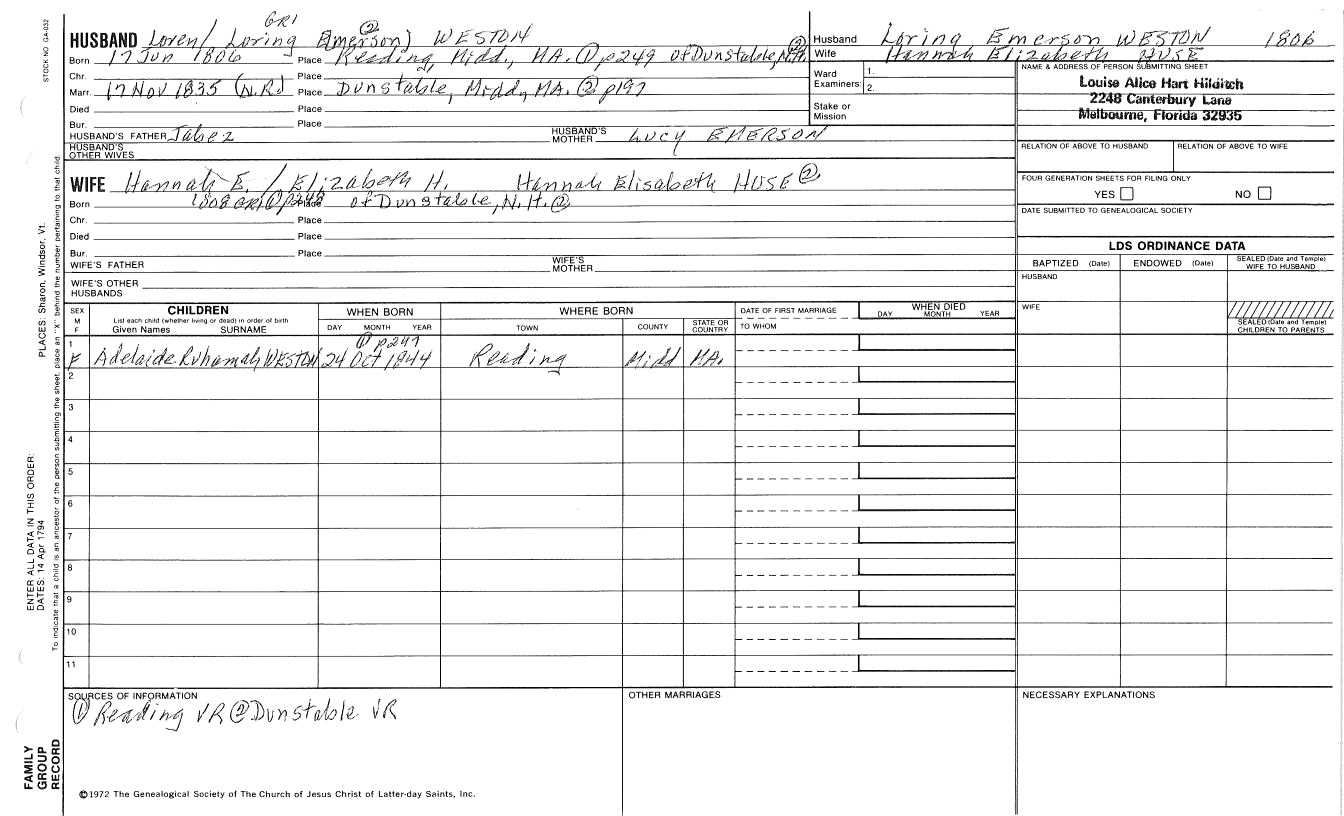 STOCK NO. GA-032
GR1
HUSBAND Loren/ Loring E(merson) ② WESTON
Born 17 Jun 1806 Place Reading, Midd., MA. ① p249 of Dunstable, N.H. ②
Chr. Place
Marr. 17 Nov 1835 (N.R.) Place Dunstable, Midd, MA. ② p197
Died Place
Bur. Place
HUSBAND'S FATHER Jabez HUSBAND'S MOTHER Lucy EMERSON
HUSBAND'S OTHER WIVES
Husband Loring Emerson WESTON 1806
Wife Hannah Elizabeth HUSE
Ward Examiners: 1. 2.
Stake or Mission
NAME & ADDRESS OF PERSON SUBMITTING SHEET
Louise Alice Hart Hilditch
2248 Canterbury Lane
Melbourne, Florida 32935
RELATION OF ABOVE TO HUSBAND RELATION OF ABOVE TO WIFE
FOUR GENERATION SHEETS FOR FILING ONLY
YES NO
DATE SUBMITTED TO GENEALOGICAL SOCIETY
WIFE Hannah E. / Elizabeth H. Hannah Elisabeth HUSE ②
Born 1808 GR1 ① p248 Place of Dunstable, N.H. ②
Chr. Place
Died Place
Bur. Place
WIFE'S FATHER WIFE'S MOTHER
WIFE'S OTHER HUSBANDS
LDS ORDINANCE DATA
BAPTIZED (Date) ENDOWED (Date) SEALED (Date and Temple) WIFE TO HUSBAND
HUSBAND
WIFE
SEALED (Date and Temple) CHILDREN TO PARENTS
SEX M F CHILDREN WHEN BORN WHERE BORN DATE OF FIRST MARRIAGE WHEN DIED
List each child (whether living or dead) in order of birth
Given Names SURNAME DAY MONTH YEAR TOWN COUNTY STATE OR COUNTRY TO WHOM DAY MONTH YEAR
① p247
1 F Adelaide Ruhamah WESTON 24 Oct 1844 Reading Midd MA.
2
3
4
5
6
7
8
9
10
11
SOURCES OF INFORMATION OTHER MARRIAGES NECESSARY EXPLANATIONS
① Reading VR ② Dunstable VR
©1972 The Genealogical Society of The Church of Jesus Christ of Latter-day Saints, Inc.
PLACES: Sharon, Windsor, Vt.
ENTER ALL DATA IN THIS ORDER:
DATES: 14 Apr 1794
To indicate that a child is an ancestor of the person submitting the sheet, place an "X" behind the number pertaining to that child.
FAMILY
GROUP
RECORD